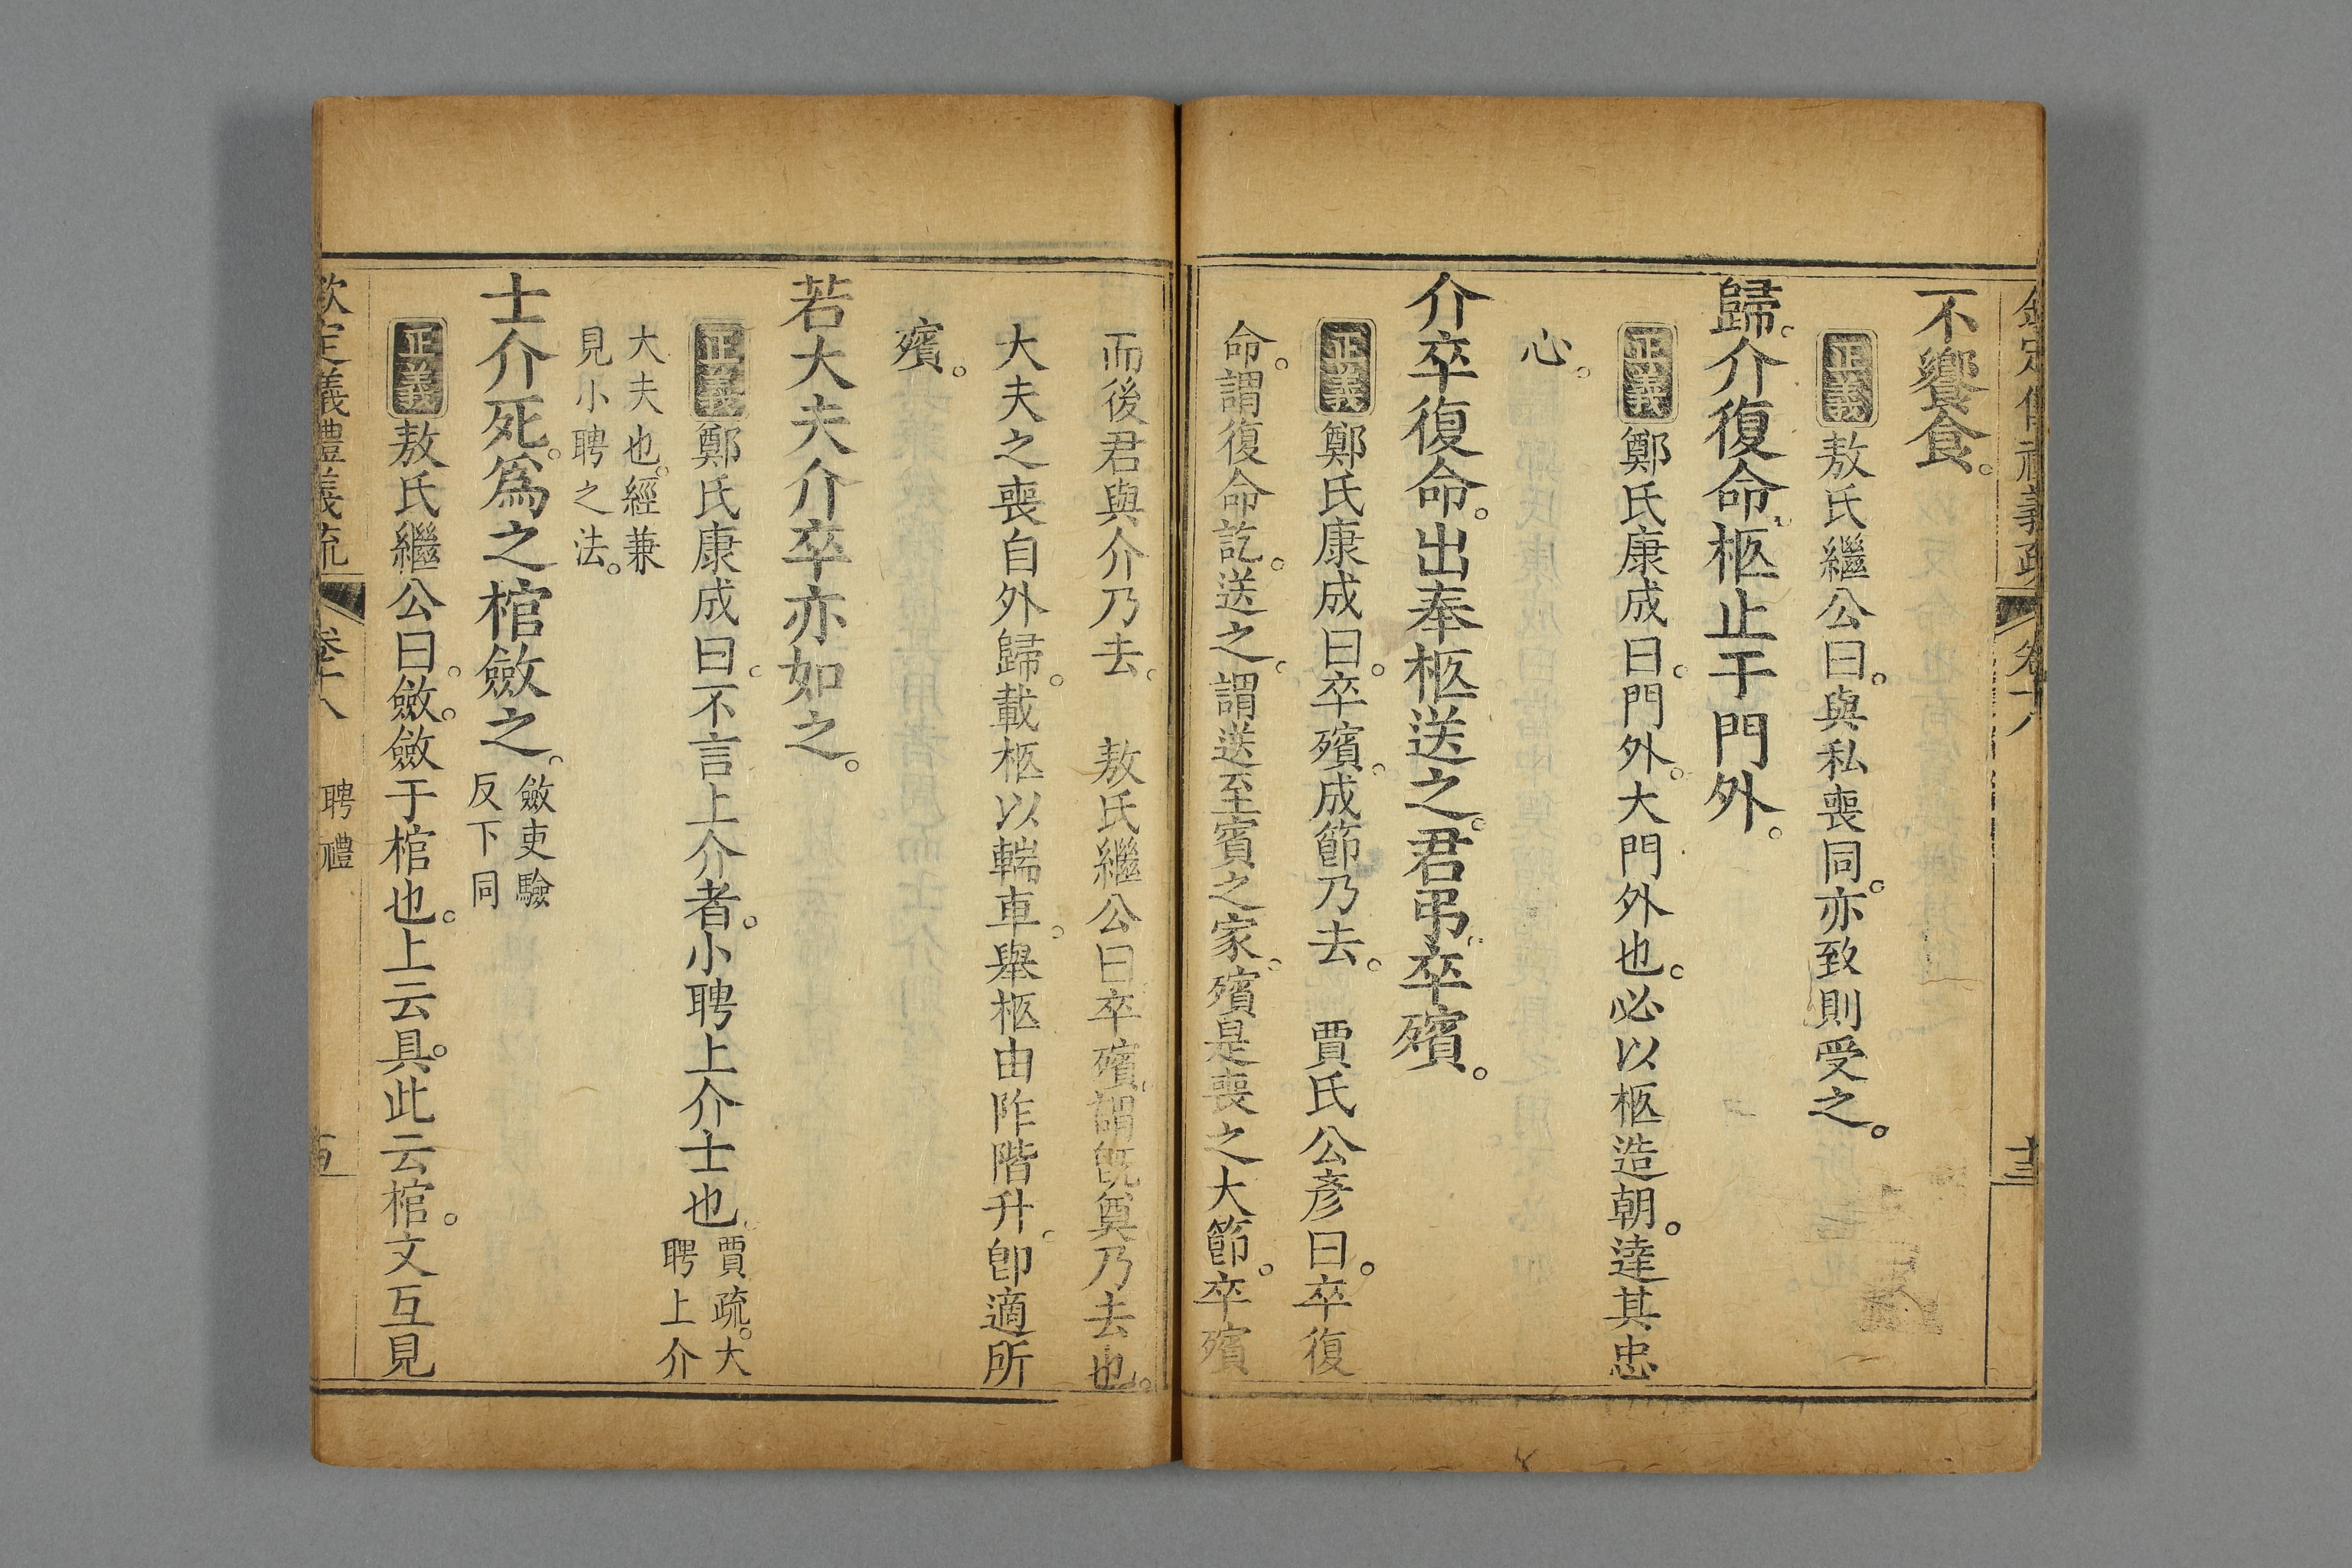 欽定儀禮義疏 卷十八 十三
不饗食。
正義敖氏繼公曰。與私喪同。亦致則受之。
歸。介復命。柩止于門外。
正義鄭氏康成曰。門外。大門外也。必以柩造朝。達其忠
心。
介卒復命。出奉柩送之。君弔。卒殯。
正義鄭氏康成曰。卒殯。成節乃去。 賈氏公彥曰。卒復
命。謂復命訖。送之。謂送至賓之家。殯是喪之大節。卒殯
而後君與介乃去。 敖氏繼公曰。卒殯。謂旣奠乃去也。
大夫之喪自外歸。載柩以輲車。舉柩由阼階升。卽適所
殯。
若大夫介卒亦如之。
正義鄭氏康成曰。不言上介者。小聘上介士也。賈疏。大
聘上介
大夫也。經兼
見小聘之法。
士介死。爲之棺斂之。斂吏驗
反下同
正義敖氏繼公曰。斂。斂于棺也。上云具。此云棺。文互見
欽定儀禮義疏 卷十八 聘禮